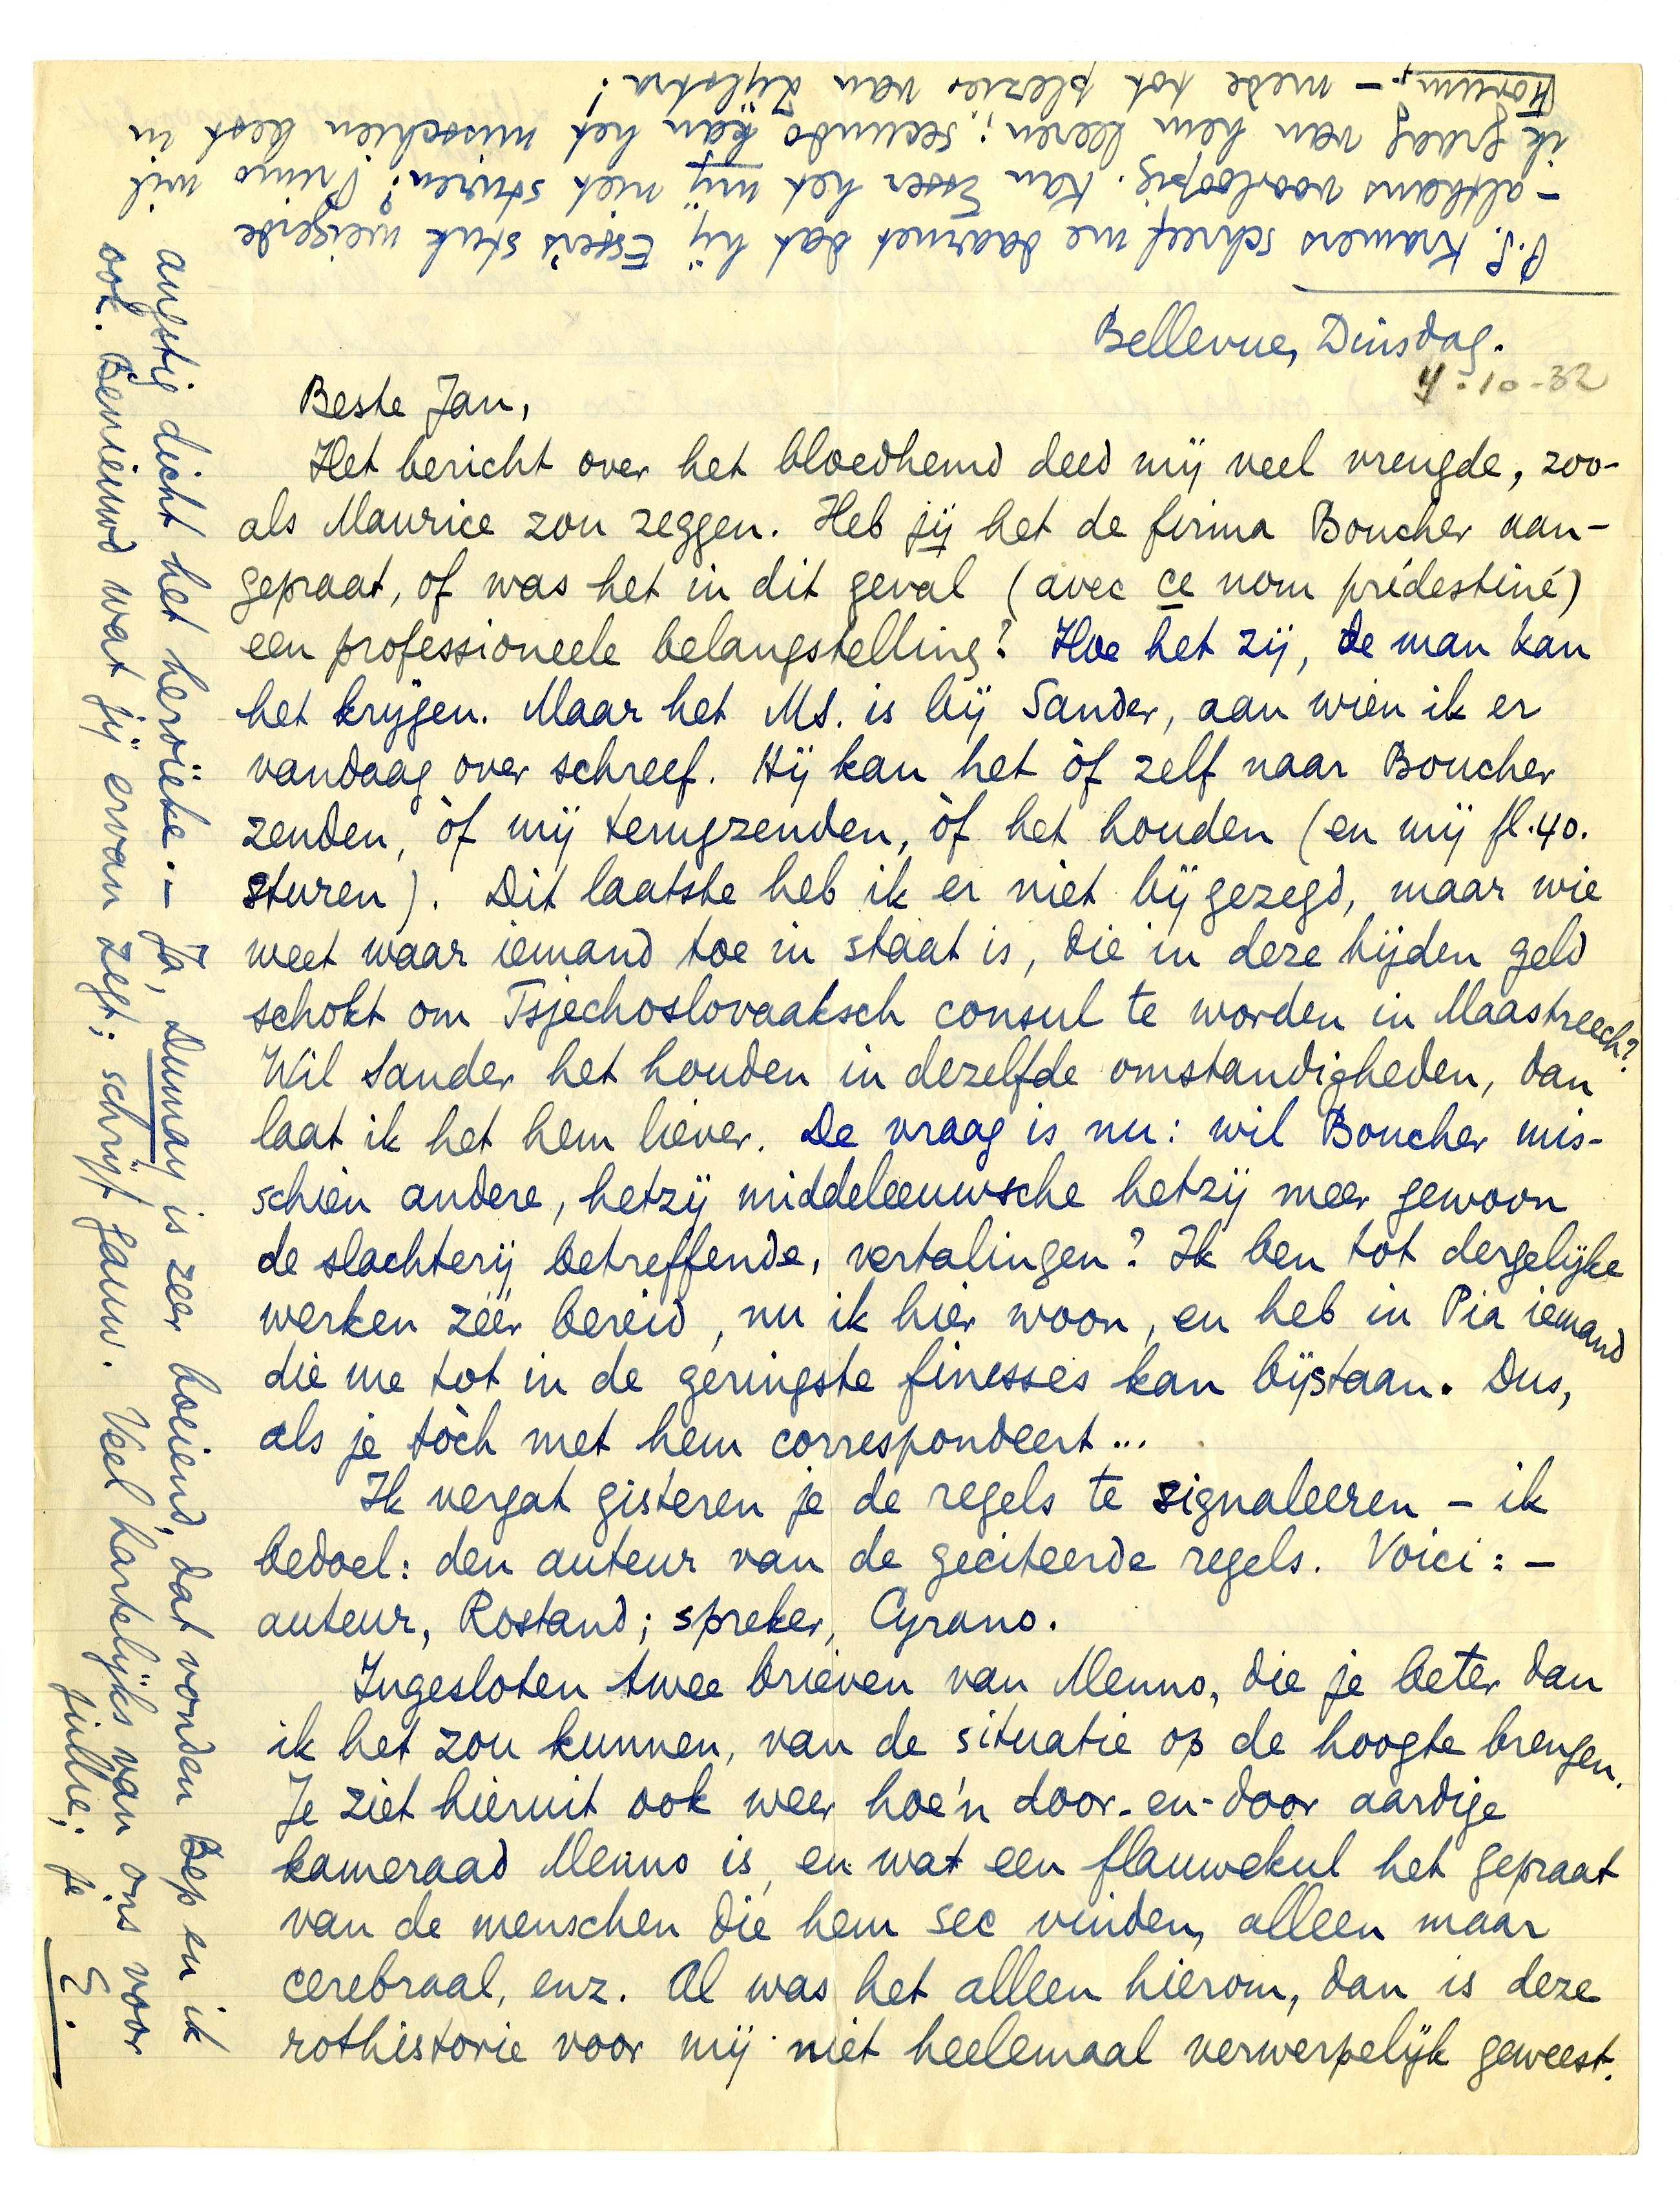 Bellevue, Dinsdag.
4-10-32
Beste Jan,
Het bericht over het bloedhemd deed mij veel vreugde, zoo-
als Maurice zou zeggen. Heb jij het de firma Boucher aan-
gepraat, of was het in dit geval (avec ce nom prédestiné)
een professioneele belangstelling? Hoe het zij, de man kan
het krijgen. Maar het MS. is bij Sander, aan wien ik er
vandaag over schreef. Hij kan het òf zelf naar Boucher
zenden, òf mij terugzenden, òf het houden (en mij fl.40.
sturen). Dit laatste heb ik er niet bijgezegd, maar wie
weet waar iemand toe in staat is, die in deze tijden geld
schokt om Tsjechoslovaaksch consul te worden in Maastreech?
Wil Sander het houden in dezelfde omstandigheden, dan
laat ik het hem liever. De vraag is nu: wil Boucher mis-
schien andere, hetzij middeleeuwsche hetzij meer gewoon
de slachterij betreffende, vertalingen? Ik ben tot dergelijke
werken zéér bereid, nu ik hier woon, en heb in Pia iemand
die me tot in de geringste finesses kan bijstaan. Dus,
als je tòch met hem correspondeert...
Ik vergat gisteren je de regels te signaleeren – ik
bedoel: den auteur van de geciteerde regels. Voici: –
auteur, Rostand; spreker, Cyrano.
Ingesloten twee brieven van Menno, die je beter dan
ik het zou kunnen, van de situatie op de hoogte brengen.
Je ziet hieruit ook weer hoe'n door-en-door aardige
kameraad Menno is, en wat een flauwekul het gepraat
van de menschen die hem sec vinden, alleen maar
cerebraal, enz. Al was het alleen hierom, dan is deze
rothistorie voor mij niet heelemaal verwerpelijk geweest.
angstig dicht het heroïeke. – Ja, Dumay is zeer boeiend, dat vonden Bep en ik
ook. Benieuwd wat jij ervan zegt; schrijf gauw. Veel hartelijks van ons voor
jullie; je
E.
P.S. Kramers schreef me daarnet dat hij Esser's stuk weigerde
– althans voorloopig. Kan Esser het mij niet sturen? Primo wil
ik graag van hem leeren; secundo kàn het misschien best in
Forum, – mede tot plezier van Zijlstra!